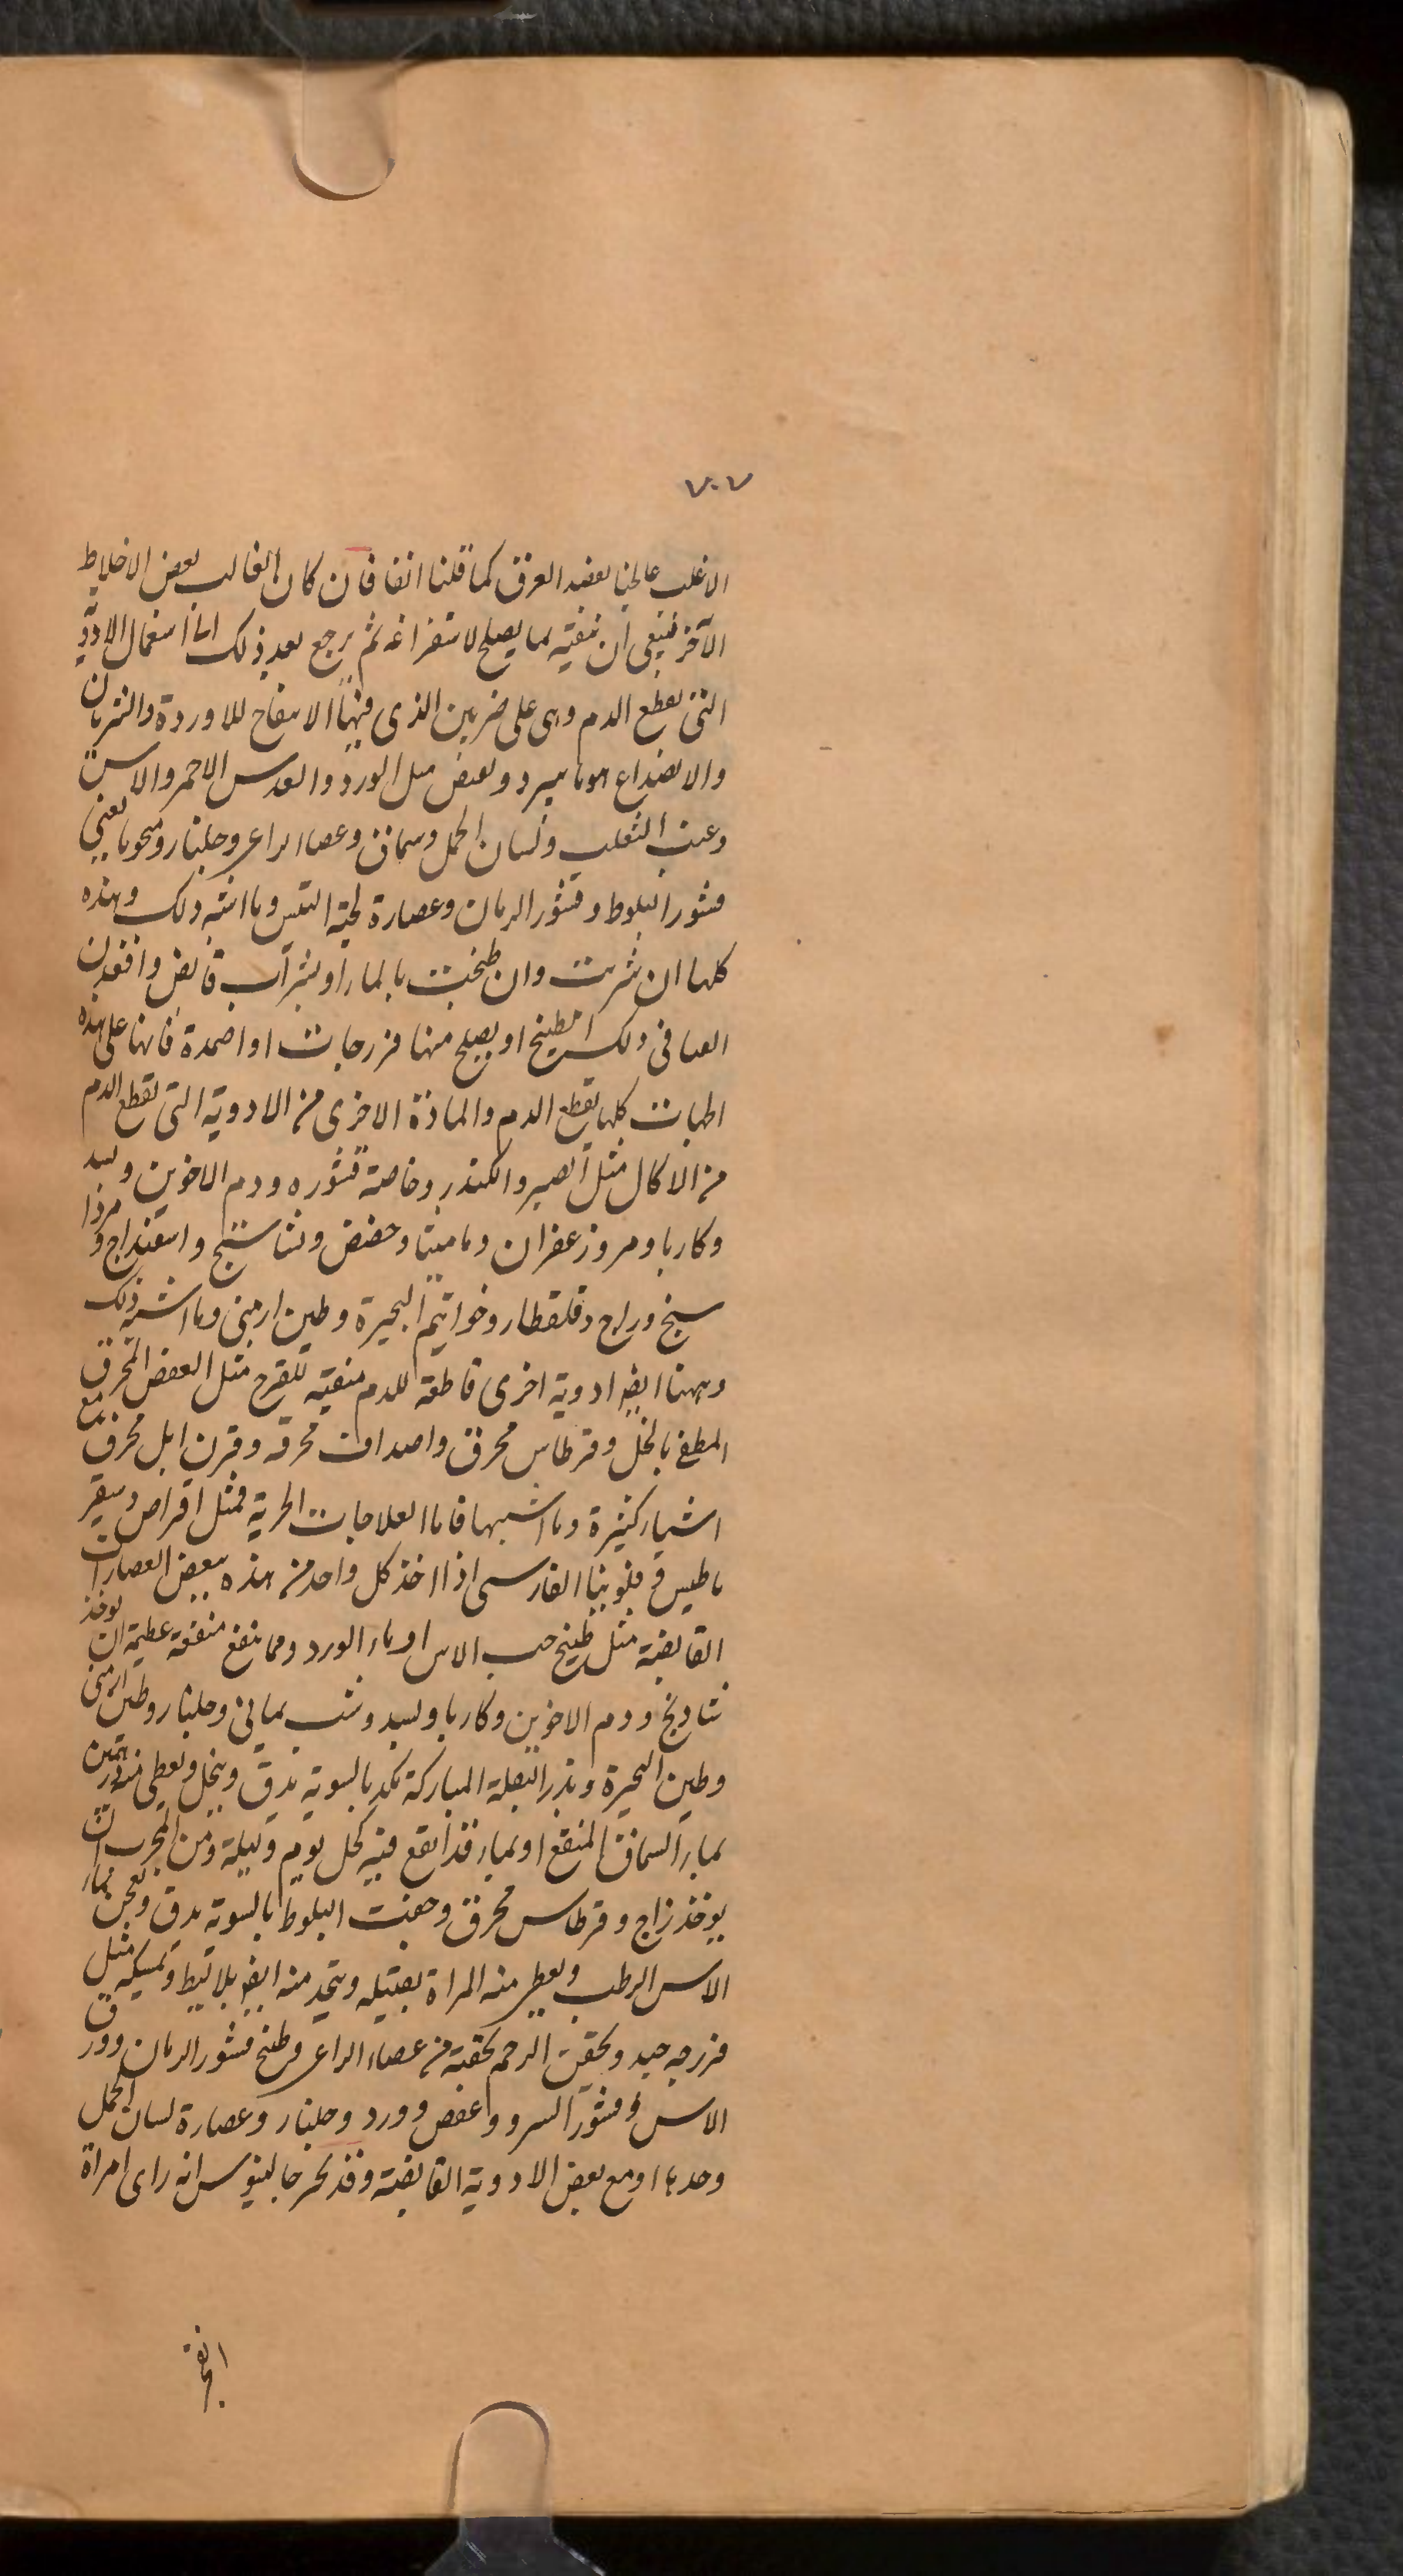 ٧٠٧
الاغلب عالجنا بفصد العرق كما قلنا انفا فان كان الغالب بعض الاخلاط
الآخر فينبغى ان ننقيه بما يصلح لاستفراغه ثم يرجع بعد ذلك الى استعمال الادوية
التى تقطع الدم وهى على ضربين الذى فيها الانفتاح للاوردة والشريان
والانصداع هو ما يبرد ويعفص مثل الورد والعدس الاحمر والاس
وعنب الثعلب ولسان الحمل وسماق وعصا الراعى وجلنار ونحوها يعنى
قشور البلوط وقشور الرمان وعصارة لحية التيس وما اشبه ذلك وهذه
كلها ان شربت وان طبخت بالماء او بشراب قابض واقعدن
فى ذلك الطبيخ او يصلح منها فرزجات او اضمدة فانها على هذه
الجهات كلها يقطع الدم والمادة الاخرى من الادوية التى تقطع الدم
من الاكال مثل الصبر والكندر وخاصة قشوره ودم الاخوين وبسد
وكاربا ومر وزعفران وماميثا وحضض ونشاستج واسفيداج و
وقلقطار وخواتيم البحيرة وطين ارمنى وما اشبه ذلك
وههنا ايضا ادوية اخرى قاطعة للدم منقية للقرح مثل العفص المحرق
المطفى بالخل وقرطاس محرق واصداف محرقة وقرن ايل محرق مع
اشياء كثيرة وما اشبهها فاما العلاجات الحرية فمثل اقراص
وفلونيا الفارسى اذا اخذ كل واحد من هذه ببعض العصارات
القابضة مثل طبيخ حب الاس او ماء الورد ومما ينفع منفعة عظيمة ان يوخذ
شادنج ودم الاخوين وكاربا وبسد وشب يمانى وجلنار وطين ارمنى
وطين البحيرة وبذر البقلة المباركة بالسوية يدق وينخل ويعطى منه درهمين
بماء السماق المنقع او بماء قد انقع فيه كحل يوم وليلة ومن المجربات
يوخذ زاج وقرطاس محرق وجفت البلوط بالسوية يدق ويعجن بماء
الاس الرطب ويعطى منه المراة بفتيله ويتخذ منه ايضا بلاليط وتمسكه مثل
فرزجه جيد ويحقن الرحم بحقنة من عصاء الراعى وطبخ قشور الرمان وورق
الاس وقشور السرو وعفص وورد وجلنار وعصارة لسان الحمل
وحدها او مع بعض الادوية القابضة وقد جالينوس انه راى امراة